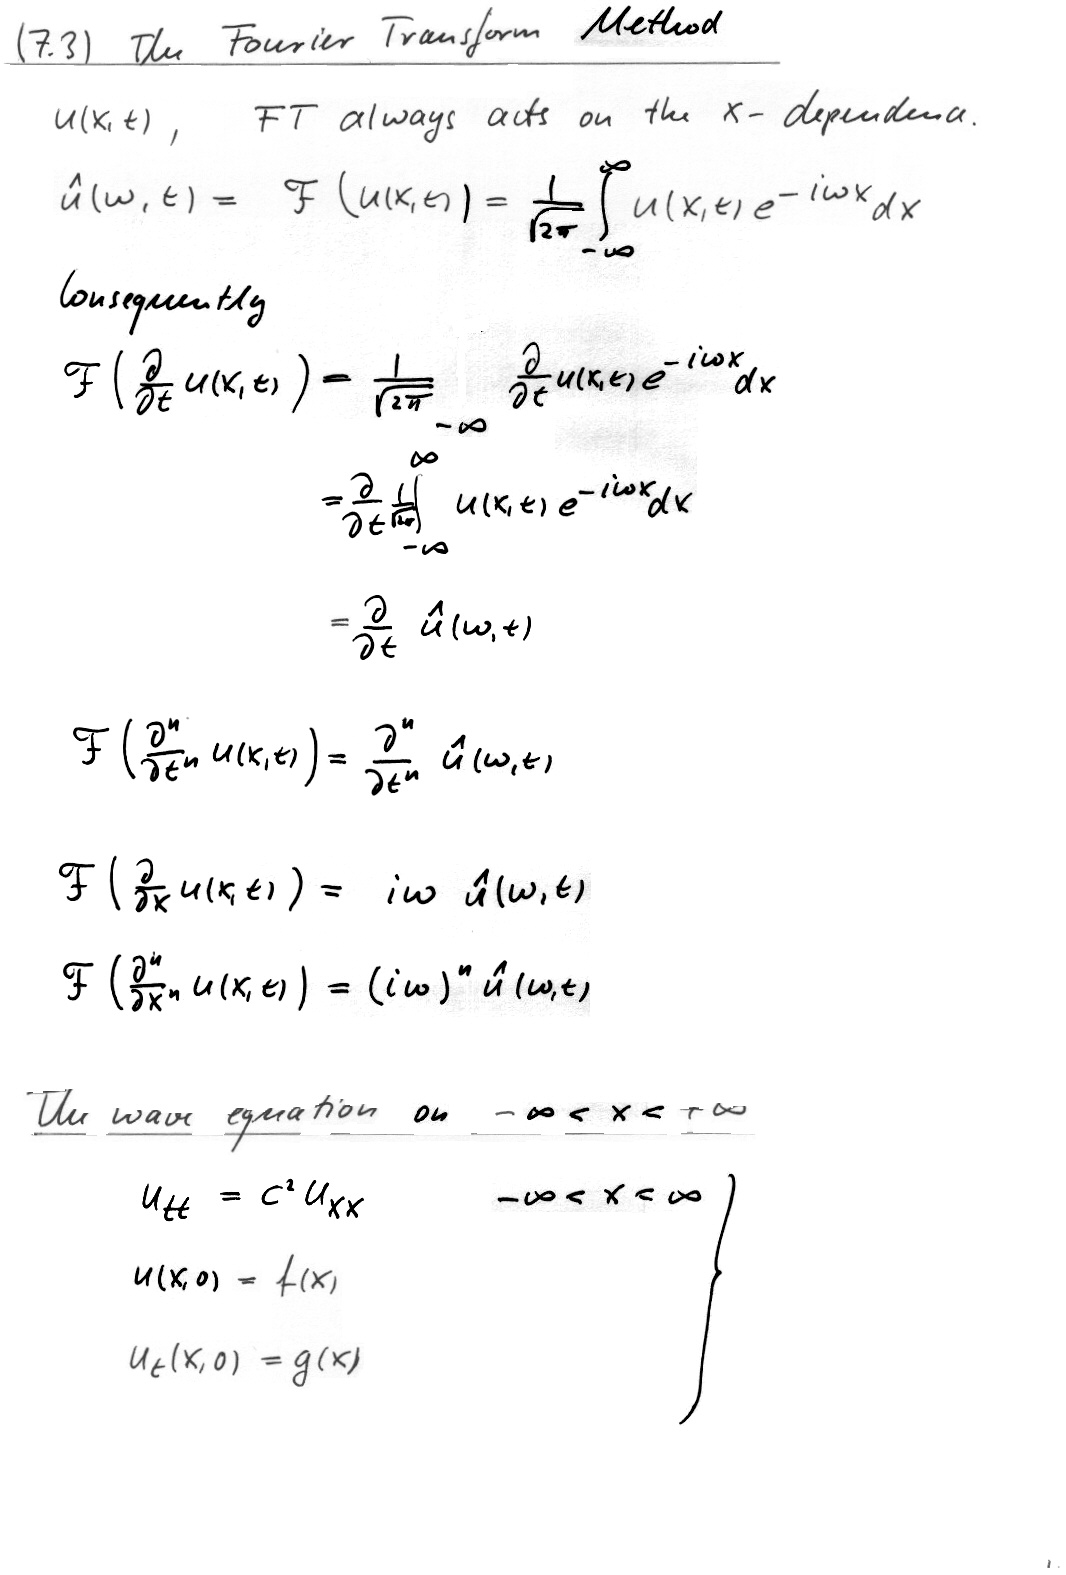 (7.3) The Fourier Transform Method
u(x,t), FT always acts on the x-dependence.
û(ω,t) = ℱ(u(x,t)) = 1/√2π ∫_{-∞}^{∞} u(x,t) e^{-iωx} dx
Consequently
ℱ(∂/∂t u(x,t)) = 1/√2π _{-∞} ∂/∂t u(x,t) e^{-iωx} dx
= ∂/∂t 1/√2π ∫_{-∞}^{∞} u(x,t) e^{-iωx} dx
= ∂/∂t û(ω,t)
ℱ(∂ⁿ/∂tⁿ u(x,t)) = ∂ⁿ/∂tⁿ û(ω,t)
ℱ(∂/∂x u(x,t)) = iω û(ω,t)
ℱ(∂ⁿ/∂xⁿ u(x,t)) = (iω)ⁿ û(ω,t)
The wave equation on -∞ < x < +∞
u_{tt} = c² u_{xx} -∞ < x < ∞ }
u(x,0) = f(x)
u_t(x,0) = g(x)